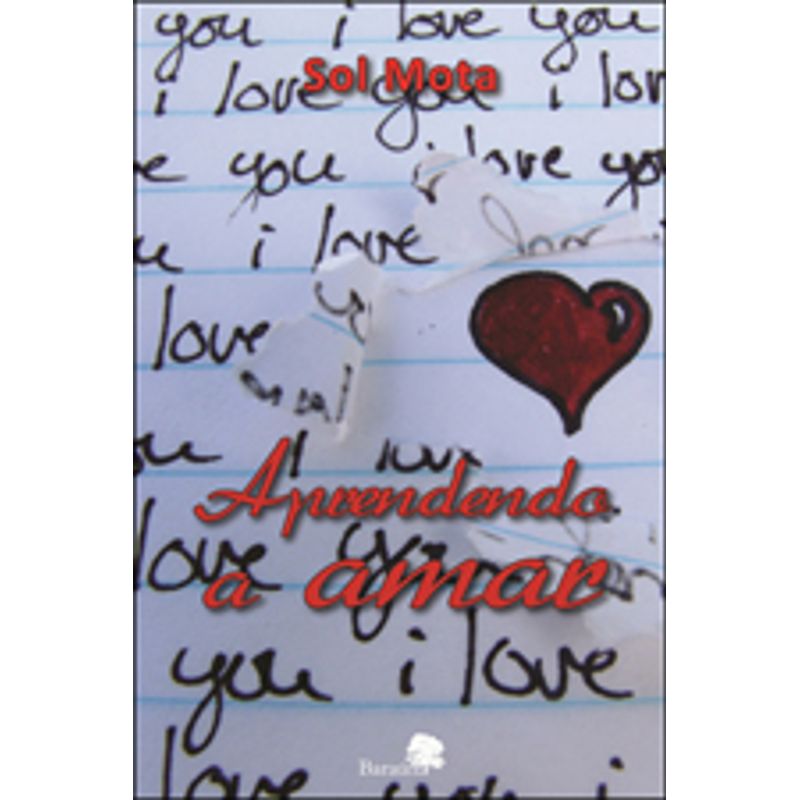 you i love you
Sol Mota
i love you i lov
e you i love you
u i love
love
ou i love
Aprendendo
love you
a amar
you i love
love you i
Baraúna